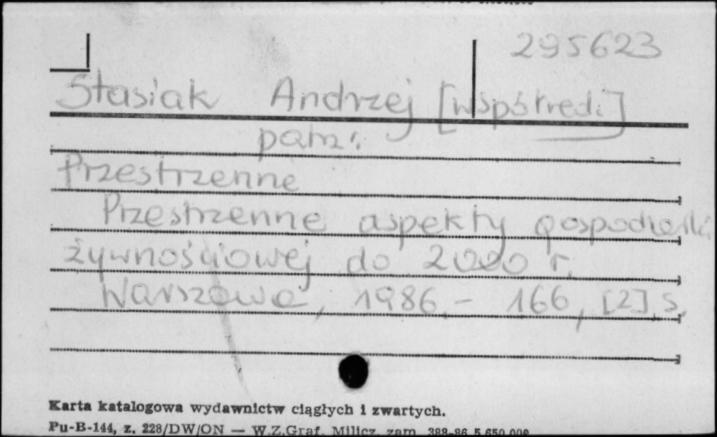 295623
Stasiak Andrzej [współred.]
patrz:
Przestrzenne
Przestrzenne aspekty gospodarki
żywnościowej do 2000 r.
Warszawa, 1986. - 166, [2] s.
Karta katalogowa wydawnictw ciągłych i zwartych.
Pu-B-144, z. 228/DW/ON — W.Z.Graf. Milicz zam. 388-86 5.650.000